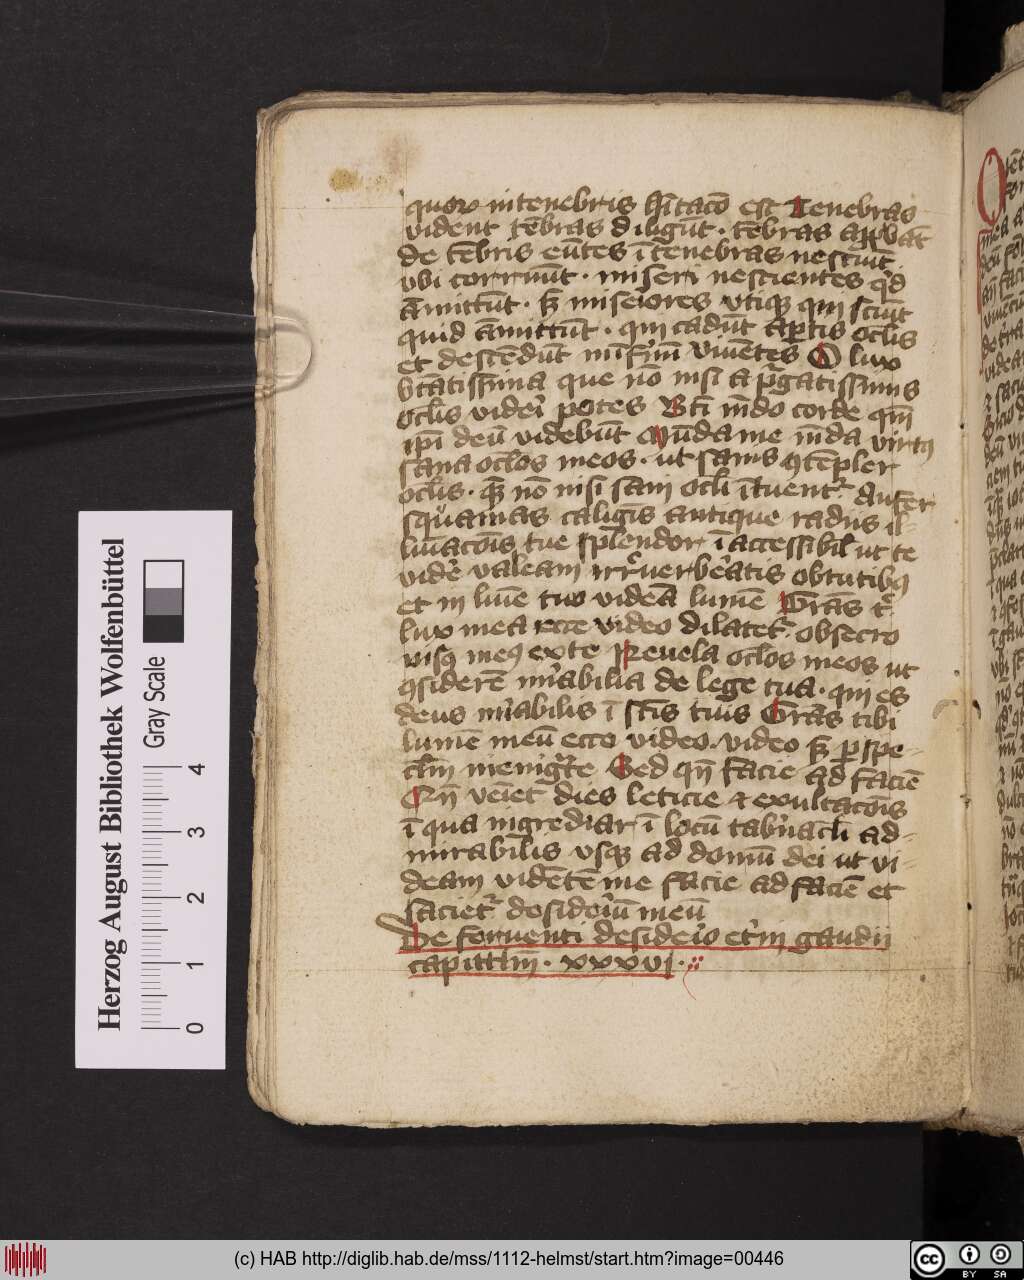 quor in tenebris hitaco est Tenebras
vident tebras diligut. tebras appbat
de tebris eutes i tenebras nesciut
vbi corruut. miseri nescientes qd
amittut. sz miseiores vtiqz qui sciut
quid amittut. qui cadut aptis oclis
et descedut infernu viuetes O lux
btatissima que no nisi a pgatissimis
oclis videi potes Bti mdo corde qm
ipi deu videbut Muda me mda virtus
sana oclos meos. ut sanis qtepler
oclis. qz no nisi sani ocli ituent Aufer
squamas caligis antique radiis il-
luiacois tue splendor i accessibil ut te
vide valeam irreuerbeatis obtutibus
et in luie tuo videa lume Gras t
lux mea ecce video dilatet obsecro
visq meq ex te Reuela oclos meos ut
qsidere mabilia de lege tua. qui es
deus mabilis i scis tuis Gras tibi
lume meu ecco video. video sz p spe-
clm in enigte Sed qn facie ad facie
Qn veiet dies leticie et exultacois
i qua ingrediar i locu tabnacli ad-
mirabilis vsqz ad domu dei ut vi-
deam videte me facie ad facie et
saciet desideiu meu
De feruenti desideio etni gaudii
capittlm. xxxvi.
Herzog August Bibliothek Wolfenbüttel
Gray Scale
0 1 2 3 4
(c) HAB http://diglib.hab.de/mss/1112-helmst/start.htm?image=00446
cc BY SA